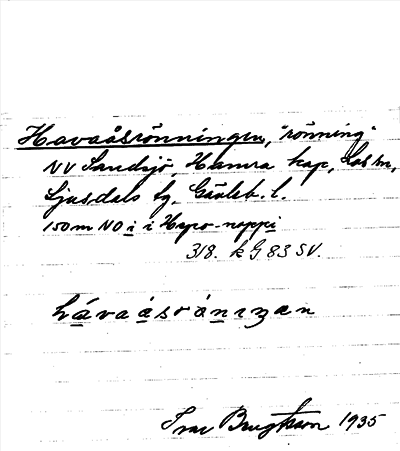 Havaåsrönningen, "rönning"
NV Sandsjö, Hamra kap, Los sn,
Ljusdals tg. Gävleb. l.
150 m NO i i Hypo-nappi
318. kG 83 SV.
hávaåsrónızan
Ivar Bengtsson 1935